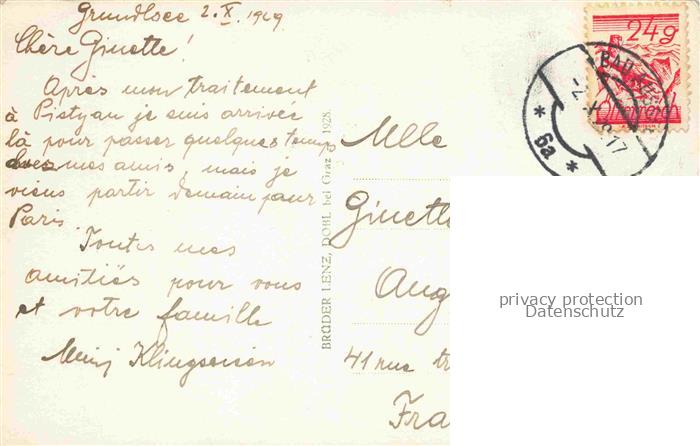 Grundlsee 2.X.1929
Chère Ginette!
Après mon traitement
à Pistyan je suis arrivée
là pour passer quelques temps
chez mes amis, mais je
viens partir demain pour
Paris.
Toutes mes
amitiés pour vous
et votre famille
BRÜDER LENZ, DOBL bei Graz 1928.
Mlle
Ginette
Aug
41 rue
Fra
24g
Österreich
BAD
* 6a *
privacy protection
Datenschutz